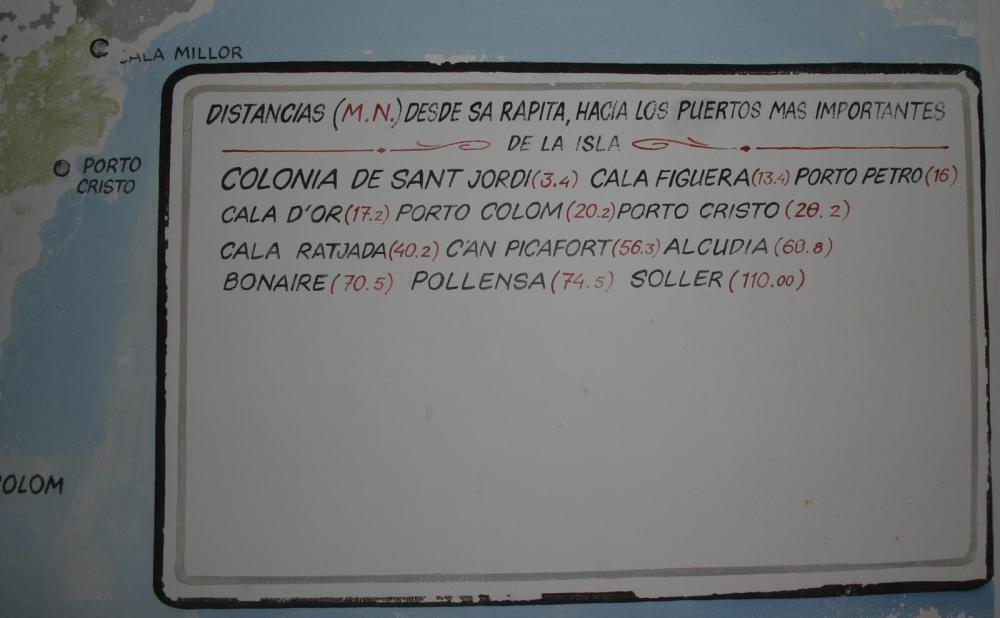 CALA MILLOR
DISTANCIAS (M.N.) DESDE SA RAPITA, HACIA LOS PUERTOS MAS IMPORTANTES
DE LA ISLA
PORTO
CRISTO
COLONIA DE SANT JORDI (3.4) CALA FIGUERA (13.4) PORTO PETRO (16)
CALA D'OR (17.2) PORTO COLOM (20.2) PORTO CRISTO (28.2)
CALA RATJADA (40.2) C'AN PICAFORT (56.3) ALCUDIA (68.8)
BONAIRE (70.5) POLLENSA (74.5) SOLLER (110.00)
OLOM